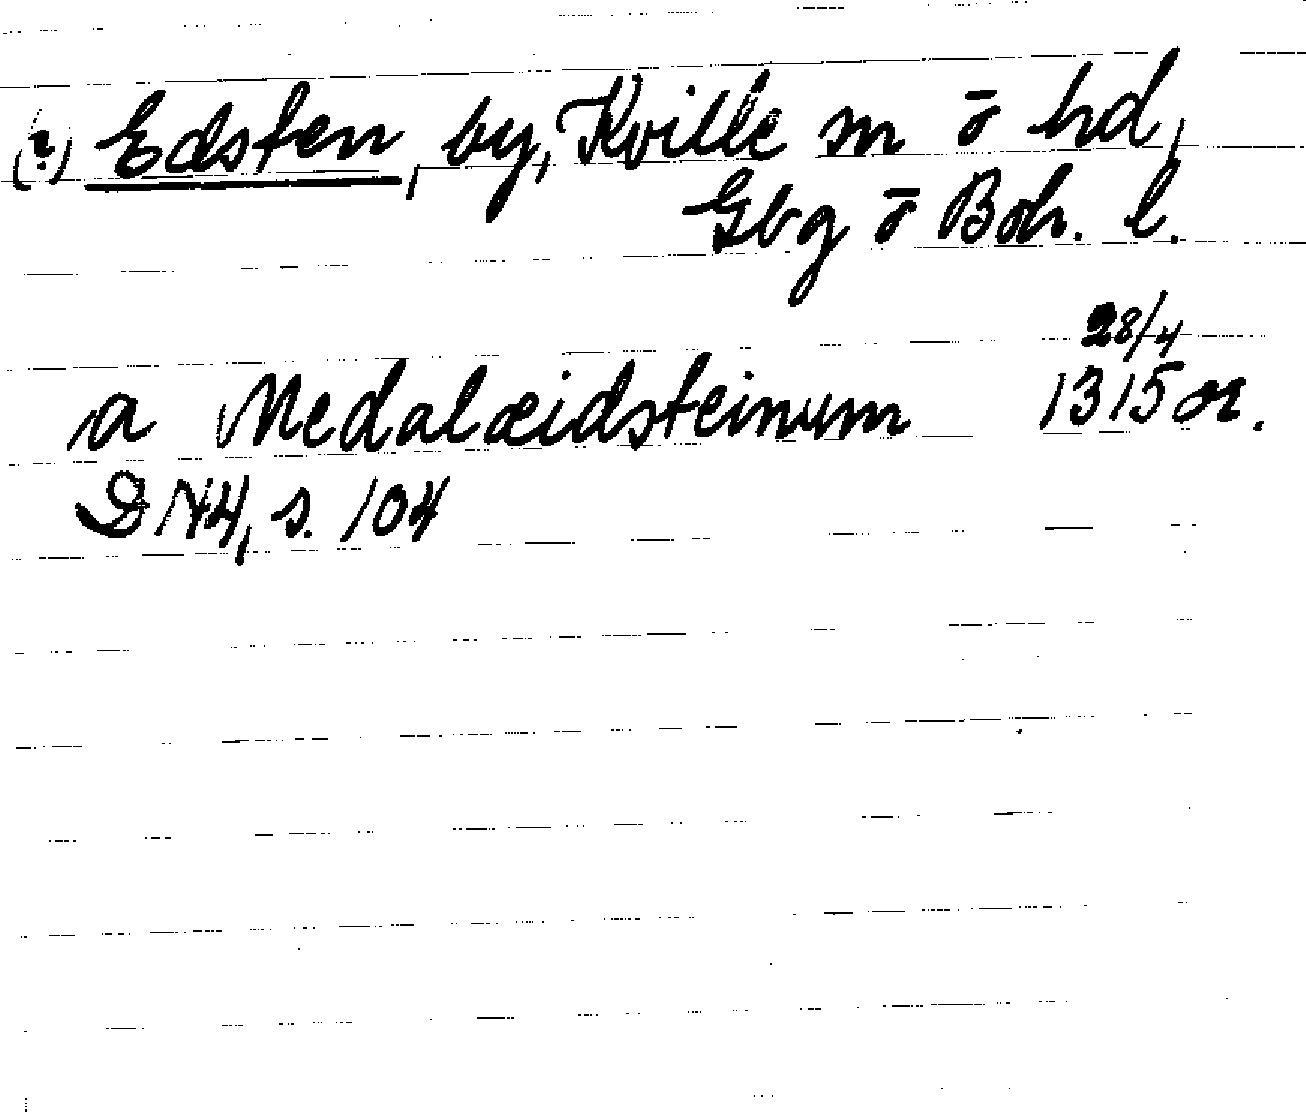 (?) Edsten, by, Kville sn o hd,
Gbg o Boh. l.
a Medalæidsteinum 28/4 1315 or.
DN4, s. 104